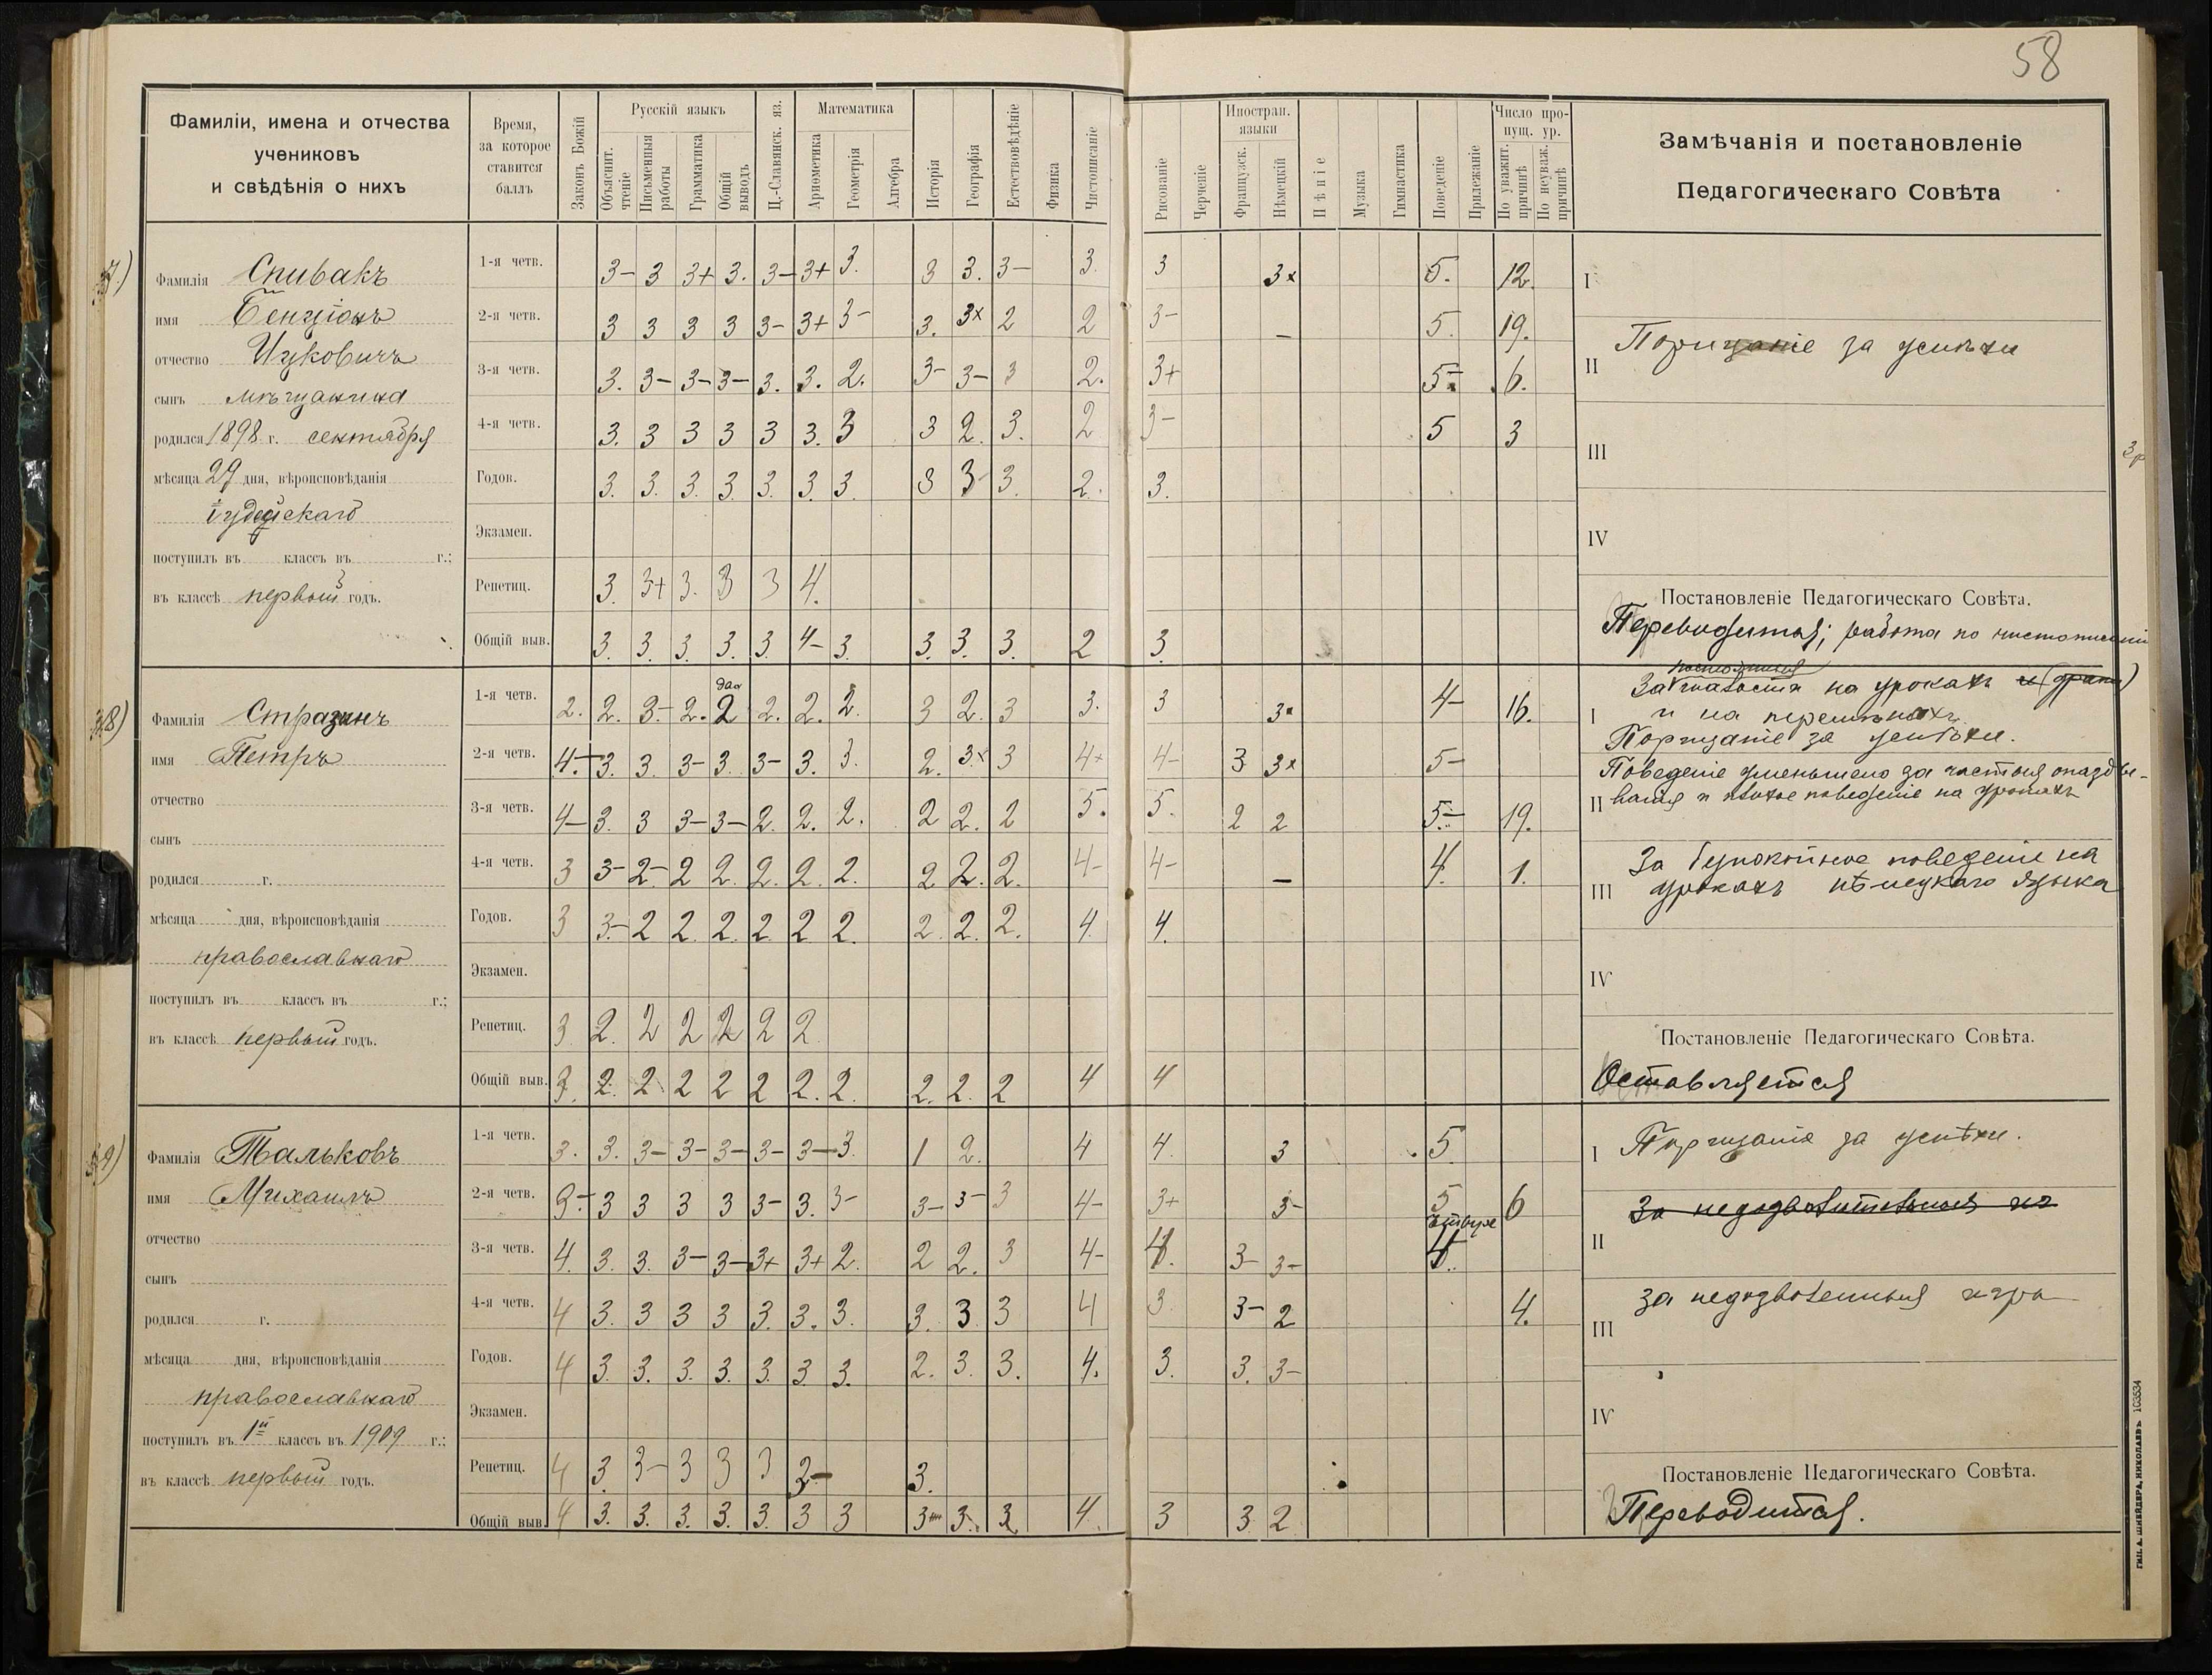 58
Фамиліи, имена и отчества
учениковъ
и свѣдѣнія о нихъ
Время,
за которое
ставится
баллъ
Законъ Божій
Русскій языкъ
Объяснит. чтеніе
Письменныя работы
Грамматика
Общій выводъ
Ц.-Славянск. яз.
Математика
Ариѳметика
Геометрія
Алгебра
Исторія
Географія
Естествовѣдѣніе
Физика
Чистописаніе
Рисованіе
Черченіе
Иностран. языки
Французск.
Нѣмецкій
Пѣніе
Музыка
Гимнастика
Поведеніе
Прилежаніе
Число пропущ. ур.
По уважит. причинѣ
По неуваж. причинѣ
Замѣчанія и постановленіе
Педагогическаго Совѣта
37)
Фамилія Спивакъ
имя Бенціонъ
отчество Ицковичъ
сынъ мѣщанина
родился 1898 г. сентября
мѣсяца 29 дня, вѣроисповѣданія
іудейскаго
поступилъ въ классъ въ г.;
въ классѣ первый годъ.
1-я четв. 3- 3 3+ 3. 3- 3+ 3. 3 3. 3- 3. 3 3× 5. 12.
2-я четв. 3 3 3 3 3- 3+ 3- 3. 3× 2 2 3- - 5. 19.
3-я четв. 3. 3- 3- 3- 3. 3. 2. 3- 3- 3 2. 3+ 5- 6.
4-я четв. 3. 3 3 3 3 3. 3 3 2. 3. 2 3- 5 3
Годов. 3. 3. 3. 3. 3. 3. 3. 3 3- 3. 2. 3.
Экзамен.
Репетиц. 3. 3+ 3. 3 3 4.
Общій выв. 3. 3. 3. 3. 3. 4- 3. 3. 3. 3. 2 3.
I
II Порицаніе за успѣхи
III
IV
Постановленіе Педагогическаго Совѣта.
Переводится; работа по чистописанію
38)
Фамилія Стразинъ
имя Петръ
отчество
сынъ
родился г.
мѣсяца дня, вѣроисповѣданія
православнаго
поступилъ въ классъ въ г.;
въ классѣ первый годъ.
1-я четв. 2. 2. 3- 2. два 2 2. 2. 2. 3 2. 3 3. 3 3× 4- 16.
2-я четв. 4- 3. 3. 3- 3. 3- 3. 3. 2. 3× 3 4+ 4- 3 3× 5-
3-я четв. 4- 3. 3 3- 3- 2. 2. 2. 2 2. 2 5. 5. 2 2 5- 19.
4-я четв. 3 3- 2- 2 2. 2. 2. 2. 2 2. 2. 4- 4- - 4. 1.
Годов. 3 3- 2 2. 2. 2. 2 2. 2. 2. 2. 4. 4.
Экзамен.
Репетиц. 3 2. 2 2 2 2 2
Общій выв. 3. 2. 2 2 2 2 2. 2. 2. 2. 2 4 4
постоянныя
За шалости на урокахъ и (драки)
I и на перемѣнахъ.
Порицаніе за успѣхи.
Поведеніе уменьшено за частыя опазды-
II ванія и плохое поведеніе на урокахъ
За безпокойное поведеніе на
III урокахъ нѣмецкаго языка
IV
Постановленіе Педагогическаго Совѣта.
Оставляется
39)
Фамилія Тальковъ
имя Михаилъ
отчество
сынъ
родился г.
мѣсяца дня, вѣроисповѣданія
православнаго
поступилъ въ 1й классъ въ 1909 г.;
въ классѣ первый годъ.
1-я четв. 3. 3. 3- 3- 3- 3- 3- 3. 1 2. 4 4. 3 5
2-я четв. 3- 3 3 3 3 3- 3. 3- 3- 3- 3 4- 3+ 3- 5 6
3-я четв. 4. 3. 3. 3- 3- 3+ 3+ 2. 2 2. 3 4- 4. 3- 3- 4.
4-я четв. 4 3. 3 3 3 3. 3. 3. 3. 3 3 4 3 3- 2 4.
Годов. 4 3. 3. 3. 3. 3. 3 3. 2. 3. 3. 4. 3. 3. 3-
Экзамен.
Репетиц. 4 3. 3- 3 3 3 3- 3.
Общій выв. 4 3. 3. 3. 3. 3. 3 3 3- 3. 3. 4. 3 3. 2
I Порицаніе за успѣхи.
II За недозволительныя иг
III за недозволенныя игры
IV
Постановленіе Педагогическаго Совѣта.
Переводится.
ТИП. А. ШНЕЙДЕРА, НИКОЛАЕВЪ 103534